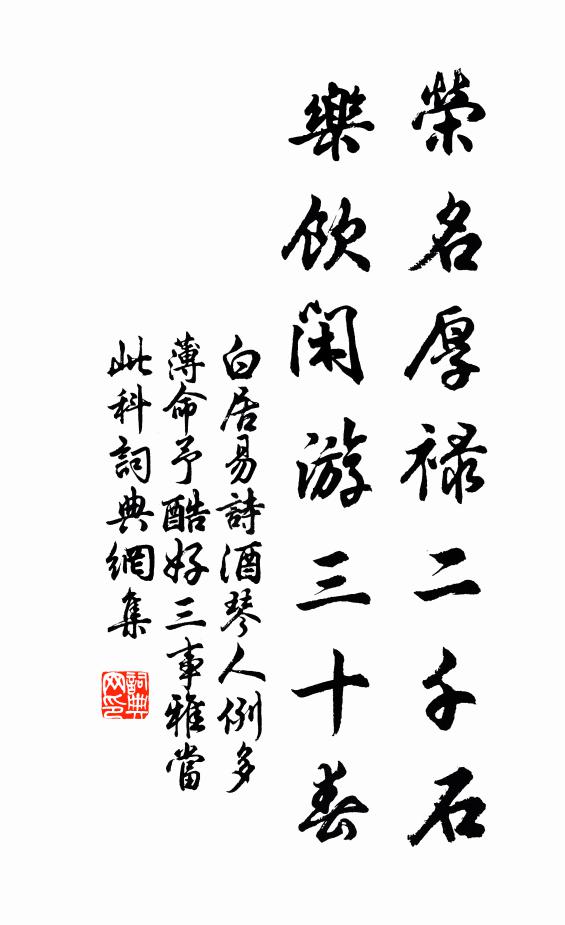 榮名厚祿二千石
樂飲閑游三十春
白居易詩酒琴人例多
薄命予酷好三事雅當
此科詞典網集
詞典
网印